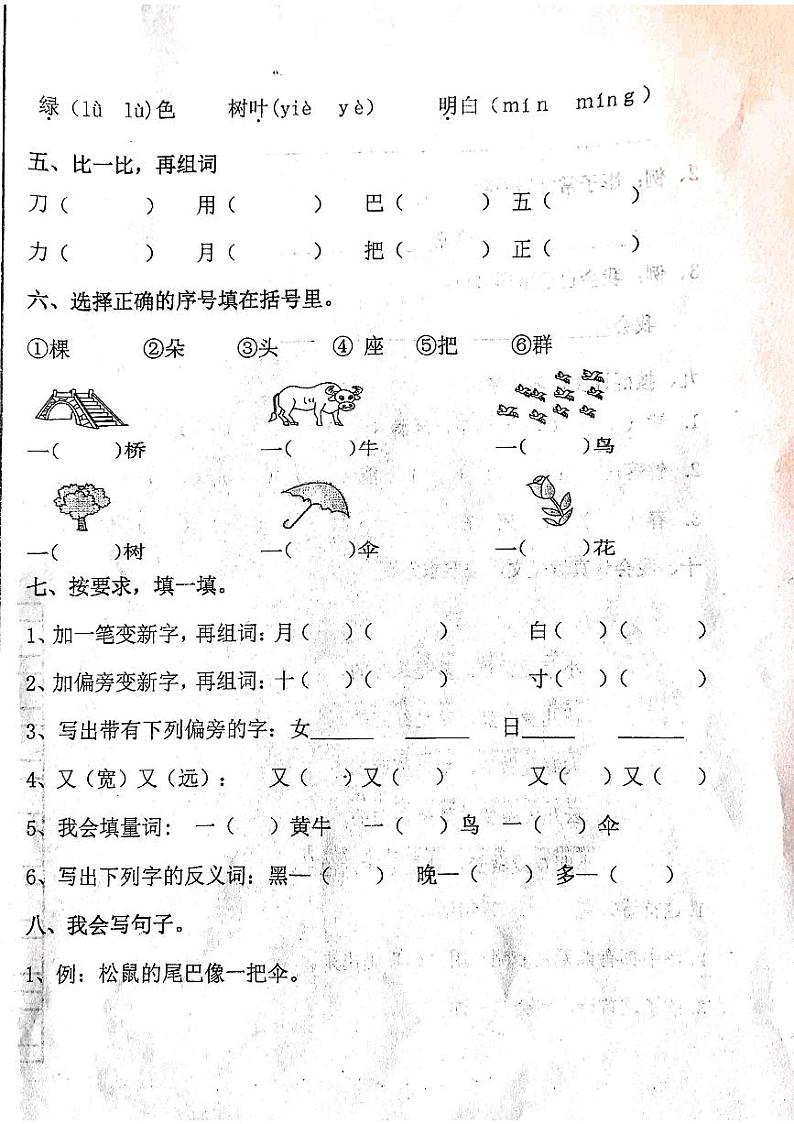 绿（lǜ lù)色 树叶(yiè yè） 明白（mín míng）
五、比一比，再组词
刀（ ） 用（ ） 巴（ ） 五（ ）
力（ ） 月（ ） 把（ ） 正（ ）
六、选择正确的序号填在括号里。
①棵 ②朵 ③头 ④座 ⑤把 ⑥群
一( )桥 一( )牛 一( )鸟
一( )树 一( )伞 一( )花
七、按要求，填一填。
1、加一笔变新字，再组词：月（ ）（ ） 白（ ）（ ）
2、加偏旁变新字，再组词：十（ ）（ ） 寸（ ）（ ）
3、写出带有下列偏旁的字：女_____ _____ 日_____ _____
4、又（宽）又（远）： 又（ ）又（ ） 又（ ）又（ ）
5、我会填量词： 一（ ）黄牛 一（ ）鸟 一（ ）伞
6、写出下列字的反义词：黑—（ ） 晚—（ ） 多—（ ）
八、我会写句子。
1、例：松鼠的尾巴像一把伞。